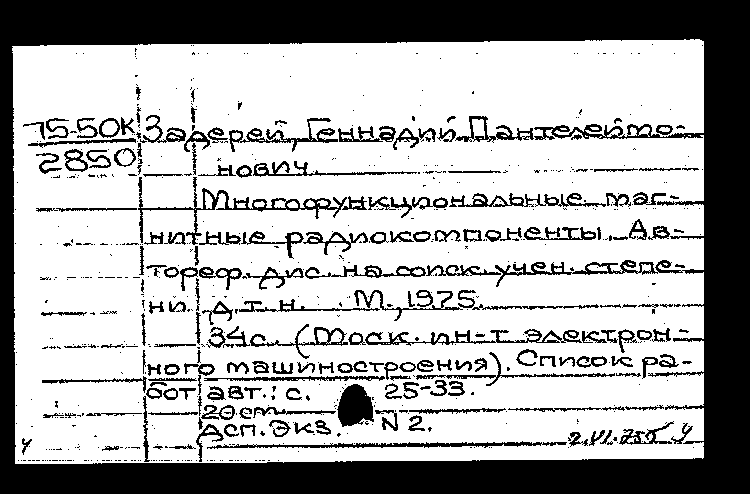 75-50К Задерей, Геннадий Пантелеймо-
2850 нович.
Многофункциональные маг-
нитные радиокомпоненты. Ав-
тореф. дис. на соиск. учен. степе-
ни д.т.н. М., 1975.
34с. (Моск. ин-т электрон-
ного машиностроения). Список ра-
бот авт.: с. 25-33.
20 cm.
Дсп. Экз. N 2.